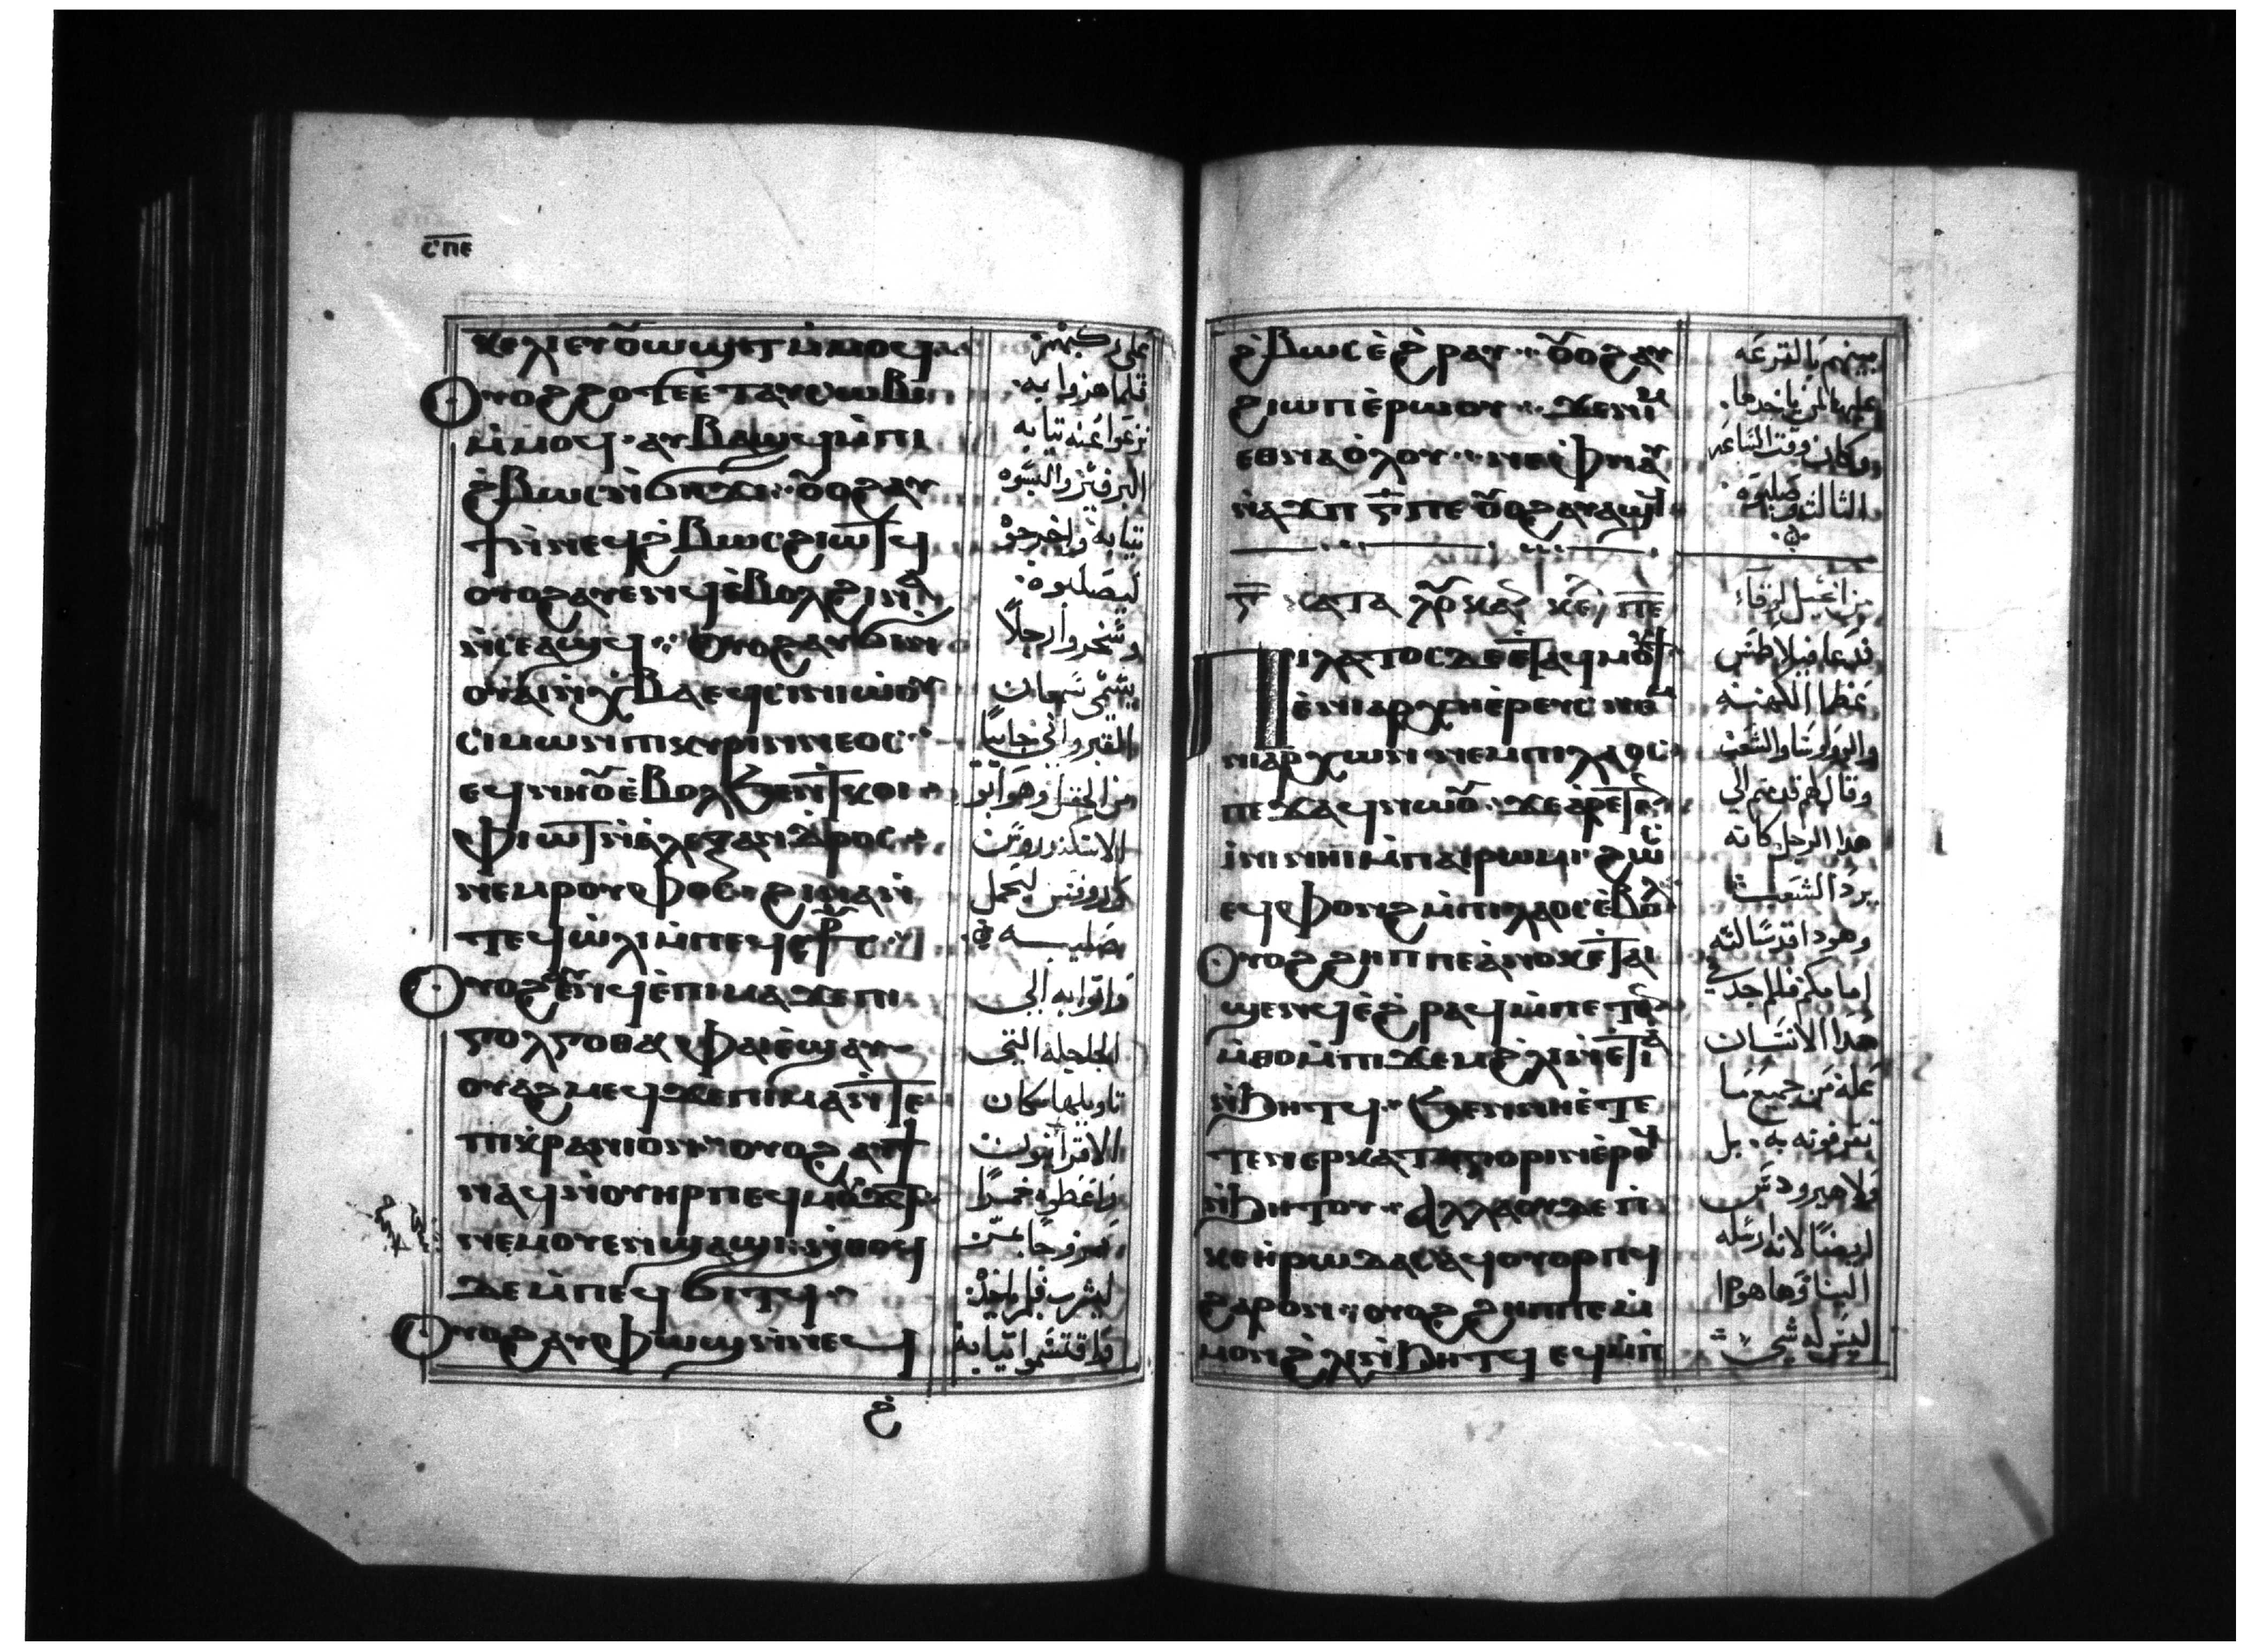 ⲥⲡⲉ
ⲕⲉⲗⲓ ⲉⲩⲟⲩⲱϣⲧ ⲙ̀ⲙⲟϥ
ⲟⲩⲟϩ ϩⲟⲧⲉ ⲉ̀ⲧⲁⲩⲥⲱⲃⲓ
ⲙ̀ⲙⲟϥ · ⲁⲩⲃⲁϣϥ ⲙ̀ⲡⲓ
ϩ̀ⲃⲱⲥ ⲛ̀ϭⲏϫⲓ ⲟⲩⲟϩ ⲁⲩ
ϯ ⲛ̀ⲛⲉϥϩ̀ⲃⲱⲥ ϩⲓⲱⲧϥ
ⲟⲩⲟϩ ⲁⲩⲉⲛϥ ⲉ̀ⲃⲟⲗ ϩⲓⲛⲁ
ⲛ̀ⲥⲉⲁϣϥ ⲟⲩⲟϩ ⲁⲩϭⲓ ⲛ
ⲉϥⲥⲓⲛⲓⲱⲟⲩ
ⲥⲓⲙⲱⲛ ⲡⲓⲕⲩⲣⲓⲛⲛⲉⲟⲥ
ⲉϥⲛⲏⲟⲩ ⲉ̀ⲃⲟⲗ ϧⲉⲛ ⲧⲕⲟⲓ
ⲫⲓⲱⲧ ⲛ̀ⲁ̀ⲗⲉⲝⲁⲛⲇⲣⲟⲥ
ⲛⲉⲙ ⲣⲟⲩⲫⲟⲥ ϩⲓⲛⲁ ⲛ
ⲧⲉϥⲱ̀ⲗⲓ ⲙ̀ⲡⲉϥⲥ̅ⲣ̅ⲥ
ⲟⲩⲟϩ ⲉⲛϥ ⲉ̀ⲡⲓⲙⲁ ϫⲉ ⲡⲓ
ⲅⲟⲗⲅⲟⲑⲁ ⲫⲁⲓ ⲉ̀ϣⲁⲩ
ⲟⲩⲁϩⲙⲉϥ ϫⲉ ⲡⲓⲙⲁ ⲛ̀ⲧⲉ
ⲡⲓⲕⲣⲁⲛⲓⲟⲛ ⲟⲩⲟϩ ⲁⲩϯ
ⲛⲁϥ ⲛ̀ⲟⲩⲏⲣⲡ ⲉϥⲙⲟϫⲧ
ⲛⲉⲙ ⲟⲩⲉⲛϣⲁϣⲓ ⲛ̀ⲑⲟϥ
ⲇⲉ ⲙ̀ⲡⲉϥϭⲓⲧϥ
ⲟⲩⲟϩ ⲁⲩⲫⲱϣ ⲛ̀ⲛⲉϥ
على ركبهم
فلما هزوا به
نزعوا عنه ثيابه
البرفير والبسوه
ثيابه واخرجوه
ليصلبوه
وسخروا رجلا
سمعان
القيروانى
من الحقل وهو ابو
الاسكندروس
وروفس ليحمل
صليبه
واتوا به الى
الجلجله التى
تاويلها مكان
الاقرانيون
واعطوه خمرا
ليشرب فلم ياخذ
واقتسموا ثيابه
ϩ̀ⲃⲱⲥ ⲉ̀ϩⲣⲁⲩ ⲟⲩⲟϩ ⲁⲩ
ϩⲓⲱⲡ ⲉ̀ⲣⲱⲟⲩ ϫⲉ ⲛⲓⲙ
ⲉⲑⲛⲁⲟ̀ⲗⲟⲩ ⲛⲉ ⲫⲛⲁⲩ
ⲛⲁϫⲡ ⲅ̅ ⲡⲉ ⲟⲩⲟϩ ⲁⲩⲁϣϥ
ⲅ̅ ⲕⲁⲧⲁ ⲗⲟⲩⲕⲁⲛ ⲕⲉ ⲡⲉ
ⲡⲓⲗⲁⲧⲟⲥ ⲇⲉ ⲉ̀ⲧⲁϥⲙⲟⲩϯ
ⲉ̀ⲛⲓⲁⲣⲭⲏⲉ̀ⲣⲉⲩⲥ ⲛⲉⲙ
ⲛⲓⲁⲣⲭⲱⲛ ⲛⲉⲙ ⲡⲓⲗⲁⲟⲥ
ⲡⲉϫⲁϥ ⲛⲱⲟⲩ ϫⲉ ⲁ̀ⲣⲉⲧⲉⲛ
ⲓ̀ⲛⲓ ⲛⲏⲓ ⲙ̀ⲡⲁⲓⲣⲱⲙⲓ ϩⲱⲥ
ⲉϥⲫⲱⲛϩ ⲙ̀ⲡⲓⲗⲁⲟⲥ ⲉ̀ⲃⲟⲗ
ⲟⲩⲟϩ ϩⲏⲡⲡⲉ ⲁ̀ⲛⲟⲕ ⲉ̀ⲧⲁⲓ
ϣⲉⲛϥ ⲉ̀ϩ̀ⲣⲁϥ ⲙ̀ⲡⲉⲧⲉⲛ
ⲙ̀ⲑⲟ ⲙ̀ⲡⲓϫⲉⲙ ϩ̀ⲗⲓ ⲛ̀ⲉⲧⲓⲁ
ⲛ̀ϧⲏⲧϥ ϧⲉⲛ ⲛⲏ ⲉ̀ⲧⲉ
ⲧⲉⲛⲉⲣⲕⲁⲧⲏⲅⲟⲣⲓⲛ ⲉ̀ⲣⲟϥ
ⲛ̀ϧⲏⲧⲟⲩ ⲁⲗⲗⲁ ⲟⲩⲇⲉ ⲡ
ⲕⲉⲏ̀ⲣⲱⲇⲏⲥ ⲁϥⲟⲩⲟⲣⲡϥ
ϩⲁⲣⲟⲛ ⲟⲩⲟϩ ϩⲏⲡⲡⲉ ⲙ̀
ⲙⲟⲛ ϩ̀ⲗⲓ ⲛ̀ϧⲏⲧϥ ⲉϥⲙ̀ⲡ
بينهم بالقرعه
عليها من ياخدها
وكان وقت الساعه
الثالثه وصلبوه
من انجيل لوقا
فدعا فيلاطس
عظما الكهنه
والروسا والشعب
وقال لهم قدمتم الى
هدا الرجل كانه
يرد الشعب
وهودا قد سالته
امامكم فلم اجد فى
هدا الانسان
عله من جميع ما
تقرفونه به . بل
ولا هيرودس
ايضا لانه ارسله
الينا وها هودا
ليس له شى